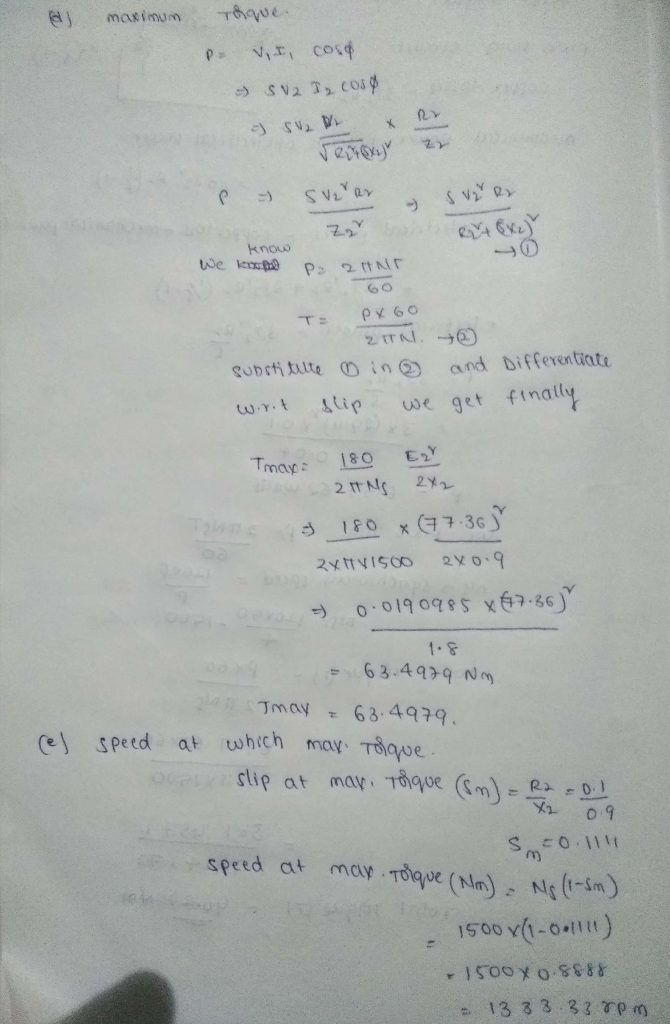 (d) maximum Torque.
P = V₁ I₁ cosφ
⇒ S V₂ I₂ cosφ
⇒ S V₂ V₂ / √R₂²+(SX₂)² × R₂ / Z₂
P ⇒ S V₂² R₂ / Z₂² ⇒ S V₂² R₂ / R₂²+(SX₂)² → ①
We know P = 2πNT / 60
T = P×60 / 2πN. → ②
substitute ① in ② and Differentiate
w.r.t slip we get finally
Tmax = 180 / 2πNs E₂² / 2X₂
⇒ 180 / 2×π×1500 × (77.36)² / 2×0.9
⇒ 0.0190985 × (77.36)² / 1.8
= 63.4979 Nm
Tmax = 63.4979.
(e) speed at which max. Torque.
slip at max. Torque (Sm) = R₂ / X₂ = 0.1 / 0.9
Sm = 0.1111
speed at max. Torque (Nm) = Ns(1-Sm)
= 1500×(1-0.1111)
= 1500×0.8888
= 1333.33 rpm